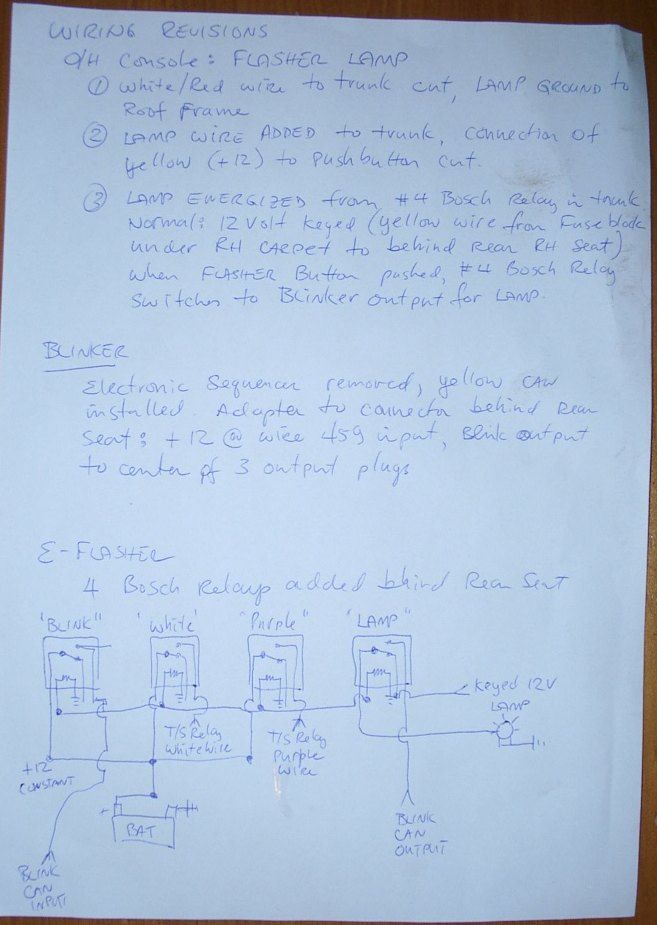 WIRING REVISIONS
O/H Console: FLASHER LAMP
① White/Red wire to trunk cut, LAMP GROUND to
Roof Frame
② LAMP WIRE ADDED to trunk, connection of
yellow (+12) to Pushbutton cut.
③ LAMP ENERGIZED from #4 Bosch Relay in trunk.
Normal: 12 Volt keyed (yellow wire from Fuseblock
under RH CARPET to behind Rear RH Seat)
when FLASHER Button pushed, #4 Bosch Relay
Switches to Blinker output for LAMP.
BLINKER
Electronic Sequencer removed, yellow CAN
installed. Adapter to connector behind Rear
Seat: +12 @ wire 459 input, Blink output
to center of 3 output plugs
E-FLASHER
4 Bosch Relays added behind Rear Seat
"BLINK" "White" "Purple" "LAMP"
Keyed 12V
LAMP
T/S Relay White Wire
T/S Relay Purple Wire
+12 CONSTANT
- BAT +
BLINK CAN OUTPUT
BLINK CAN INPUT